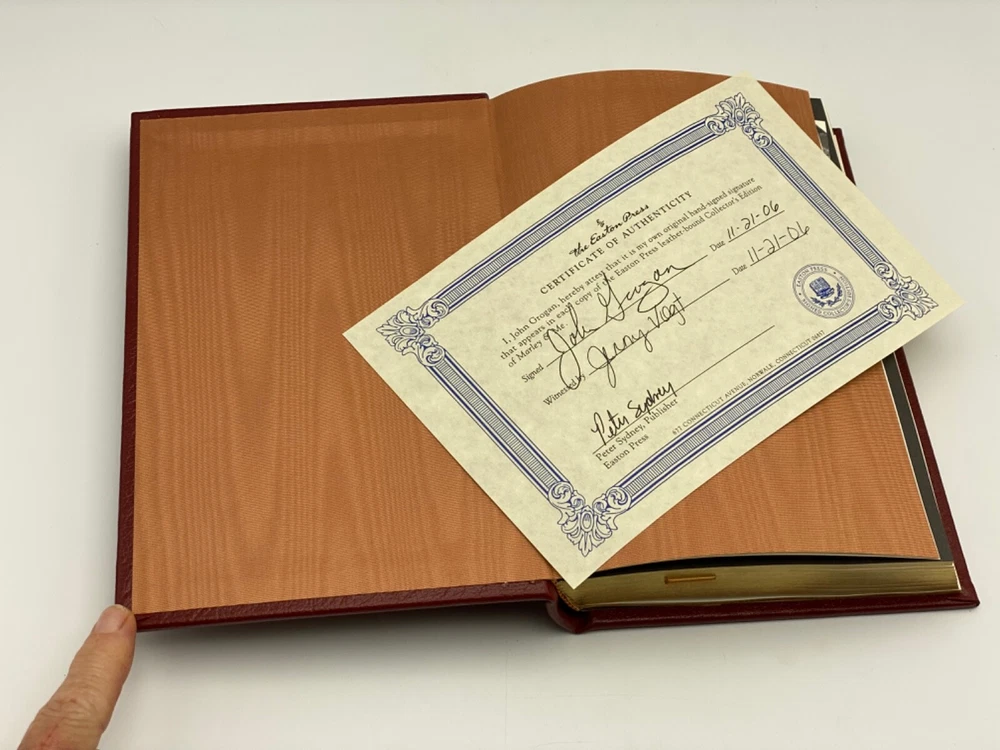 The Easton Press
CERTIFICATE OF AUTHENTICITY
I, John Grogan, hereby attest that it is my own original hand-signed signature
that appears in each copy of the Easton Press leather-bound Collector's Edition
of Marley & Me.
Signed John Grogan Date 11-21-06
Witnessed by Jenny Vogt Date 11-21-06
Peter Sydney
Peter Sydney, Publisher
Easton Press
EASTON PRESS
47 CONNECTICUT AVENUE, NORWALK, CONNECTICUT